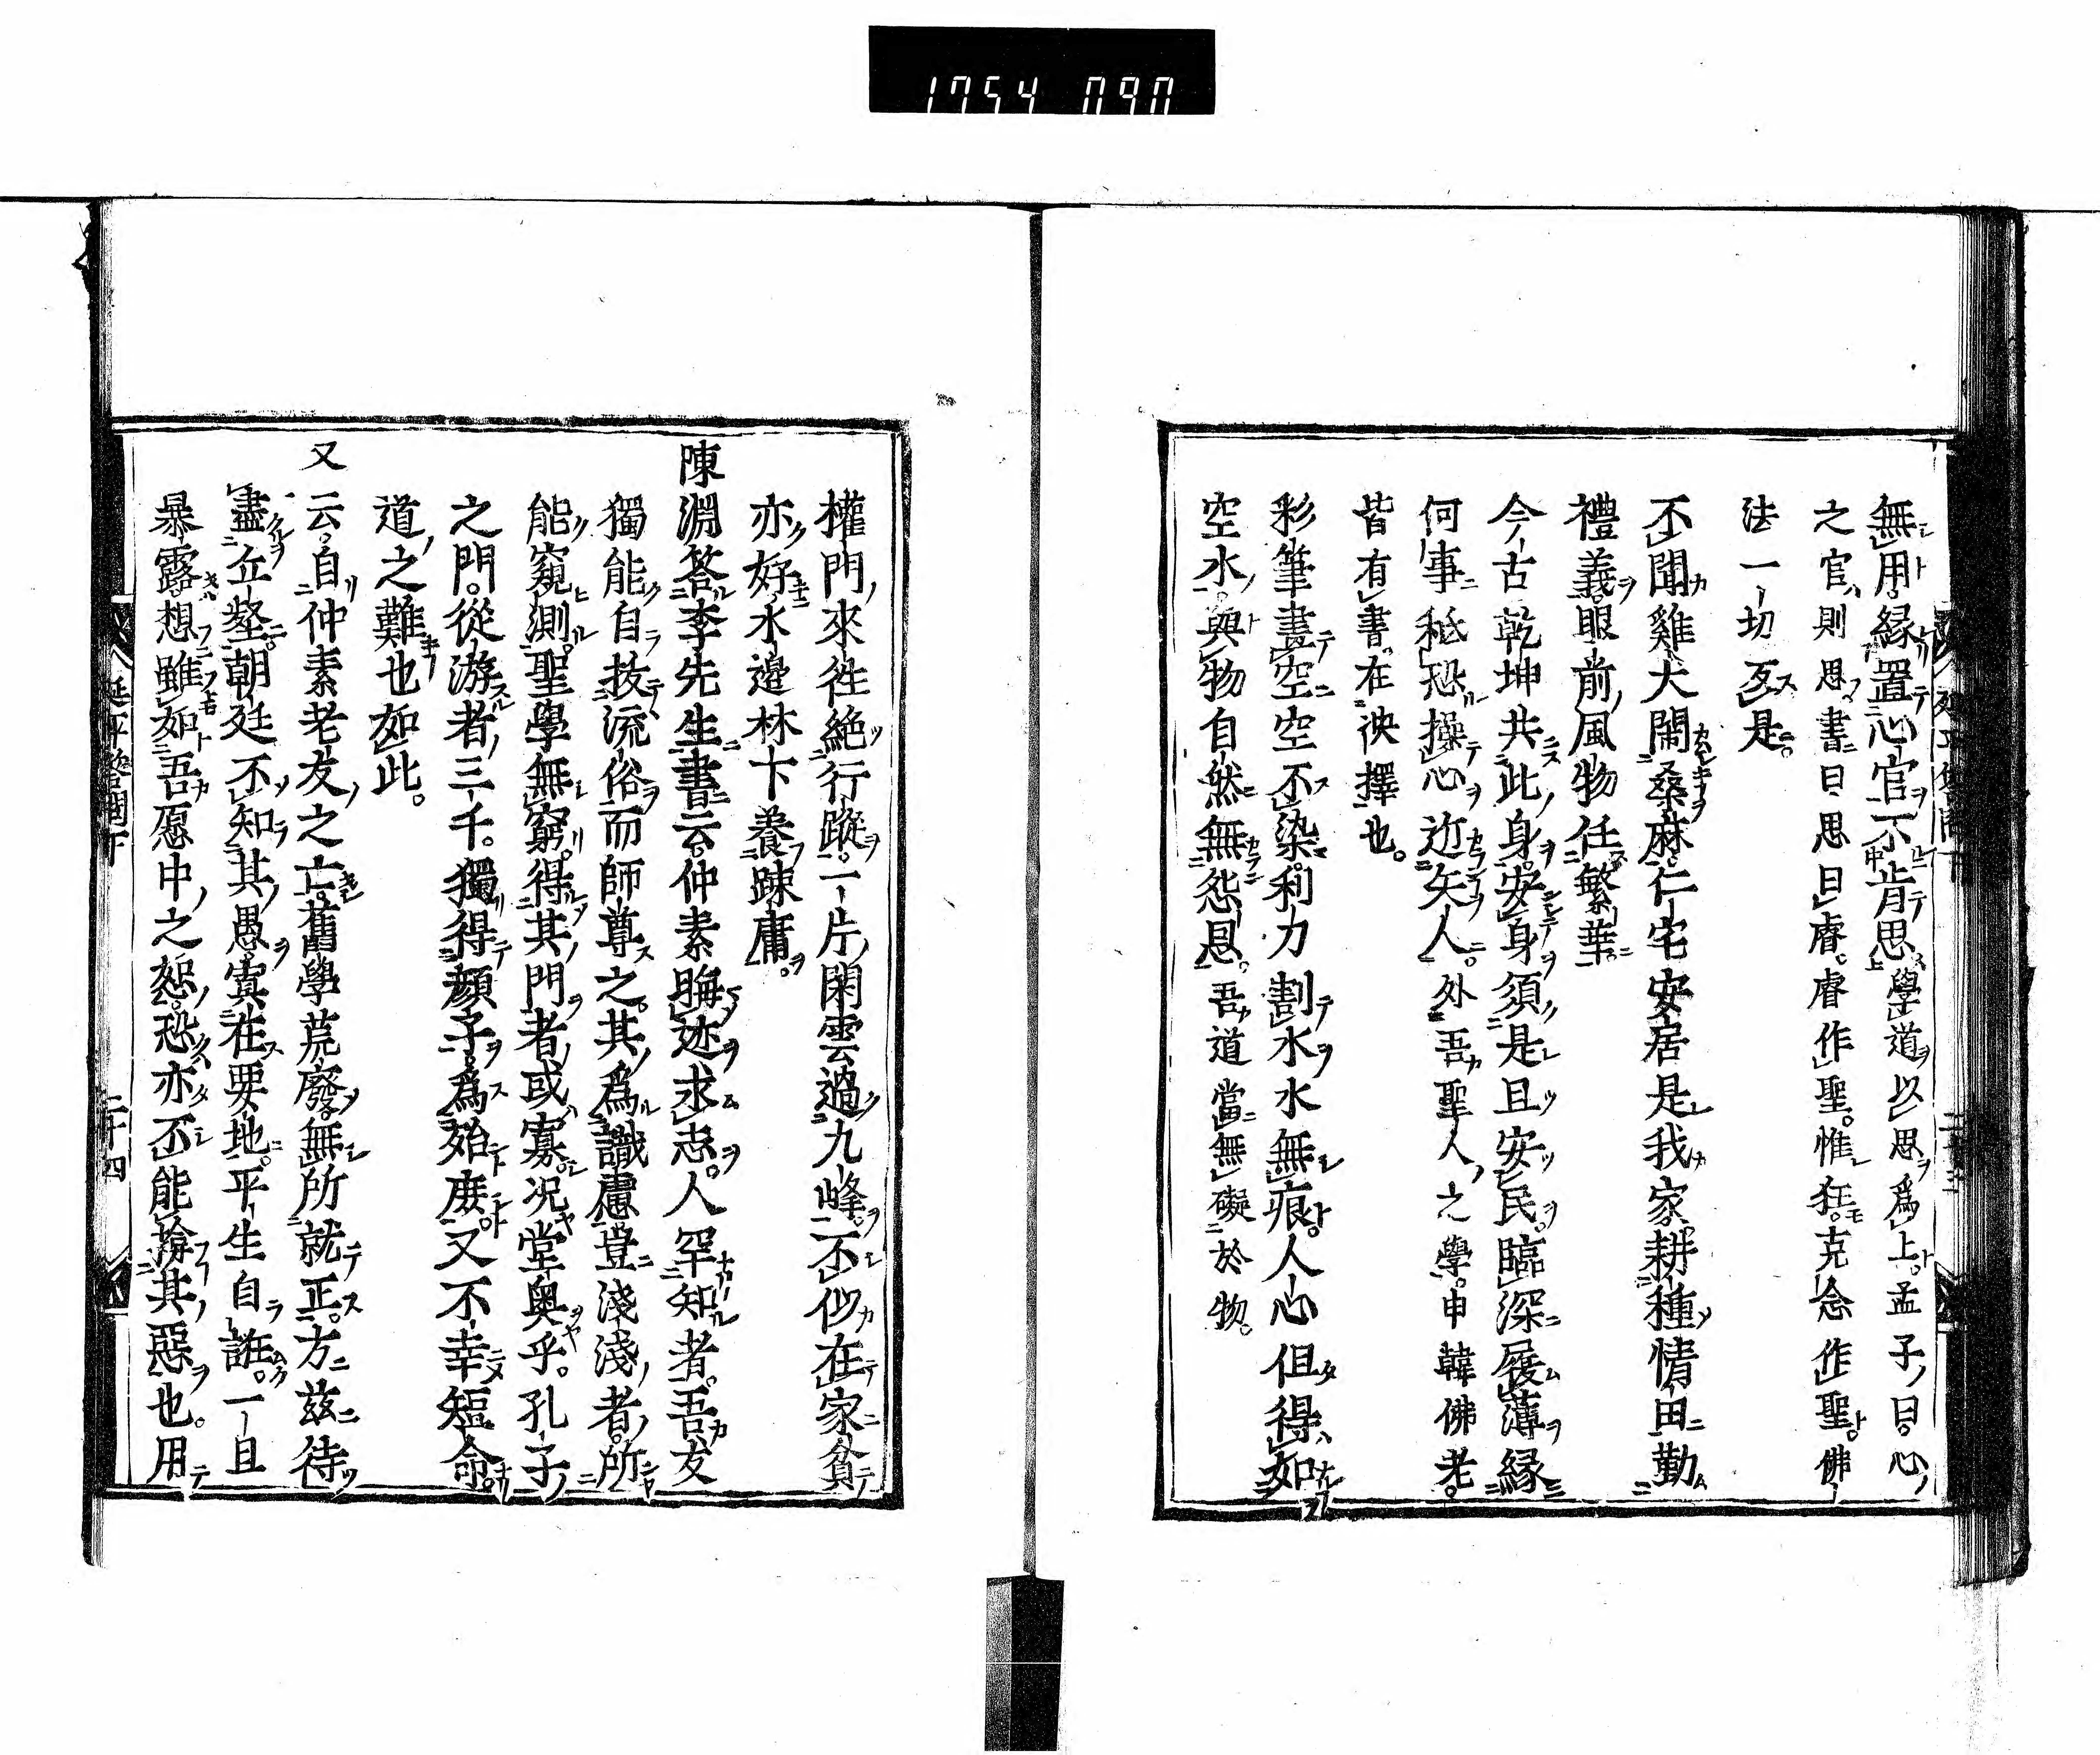 1754 090
無用縁置心官不肯思學道以思爲上孟子曰心
之官則思書曰思曰睿睿作聖惟狂克念作聖佛
法一切反是
不聞雞犬閙桑麻仁宅安居是我家耕種情田勤
禮義眼前風物任繁華
今古乾坤共此身安身須是且安民臨深履薄縁
何事秖恐操心近矢人外吾聖人之學申韓佛老
皆有書在決擇也
彩筆畫空空不染利力割水水無痕人心但得如
空水與物自然無怨恩吾道當無礙於物
權門來徃絶行蹤一片閑雲過九峰不似在家貧
亦好水邊林下養踈庸
陳淵答李先生書云仲素晦迹求志人罕知者吾友
獨能自拔流俗而師尊之其爲識慮豈淺淺者所
能窺測聖學無窮得其門者或寡况堂奥乎孔子
之門從游者三千獨得顔子爲殆庶又不幸短命
道之難也如此
又云自仲素老友之亡舊學荒廢無所就正方兹待
盡丘壑朝廷不知其愚寘在要地平生自誑一且
暴露想雖如吾愿中之恕恐亦不能揜其惡也用
延平答問下
二十四